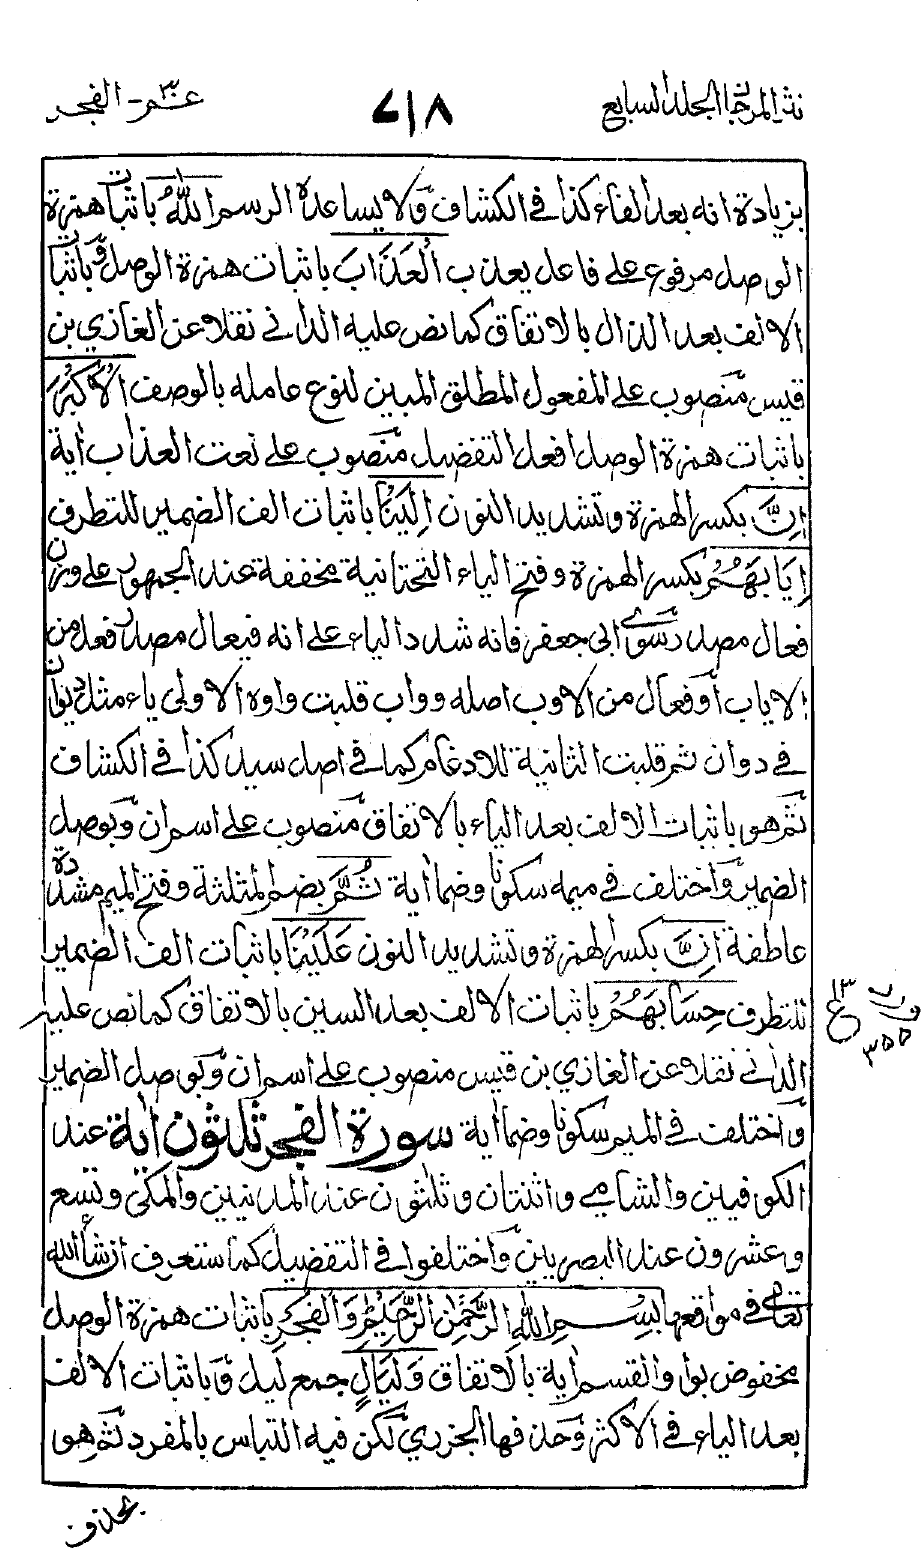 نثر المرجان الجلد السابع ٧١٨ عم ٣٠ - الفجر
بزيادة انه بعد الفاء كذا في الكشاف ولا يساعده الرسم اللّٰهُ باثبات همزة
الوصل مرفوع على فاعل يعذب الْعَذَابَ باثبات همزة الوصل وباثبات
الالف بعد الذال بالاتفاق كما نص عليه الداني نقلا عن الغازي بن
قيس منصوب على المفعول المطلق المبين لنوع عامله بالوصف الْاَكْبَرَ
باثبات همزة الوصل افعل التفضيل منصوب على نعت العذاب اية
اِنَّ بكسر الهمزة وتشديد النون اِلَيْنَا باثبات الف الضمير للتطرف
اِيَابَهُمْ بكسر الهمزة وفتح الياء التحتانية مخففة عند الجمهور على وزن
فعال مصدر سوى ابي جعفر فانه شدد الياء على انه فيعال مصدر فعل من
الاياب او فعال من الاوب اصله وواب قلبت واوه الاولى ياء مثل ديوان
في دوان ثم قلبت الثانية للادغام كما في اصل سيد كذا في الكشاف
ثم هو باثبات الالف بعد الياء بالاتفاق منصوب على اسم ان وبوصل
الضمير واختلف في ميمه سكونا وضما اية ثُمَّ بضم المثلثة وفتح الميم مشددة
عاطفة اِنَّ بكسر الهمزة وتشديد النون عَلَيْنَا باثبات الف الضمير
للتطرف حِسَابَهُمْ باثبات الالف بعد السين بالاتفاق كما نص عليه
الداني نقلا عن الغازي بن قيس منصوب على اسم ان وبوصل الضمير
واختلف في الميم سكونا وضما اية سورة الفجر ثلثون اية عند
الكوفيين والشامي واثنتان وثلثون عند المدنيين والمكي وتسع
وعشرون عند البصريين واختلفوا في التفصيل كما ستعرف ان شاء الله
تعالى في مواقعها بِسْمِ اللّٰهِ الرَّحْمٰنِ الرَّحِيْمِ وَالْفَجْرِ باثبات همزة الوصل
مخفوض بواو القسم اية بالاتفاق وَلَيَالٍ جمع ليل وباثبات الالف
بعد الياء في الاكثر وحذفها الجزري لكن فيه التباس بالمفرد ثم هو
بحذف
ع ١٣